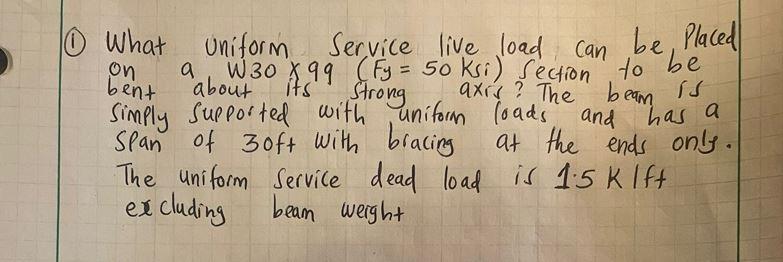 ① What uniform Service live load can be placed
on a W30 X 99 (Fy = 50 ksi) Section to be
bent about its strong axis? The beam is
simply supported with uniform loads and has a
span of 30ft with bracing at the ends only.
The uniform service dead load is 1.5 K/ft
excluding beam weight